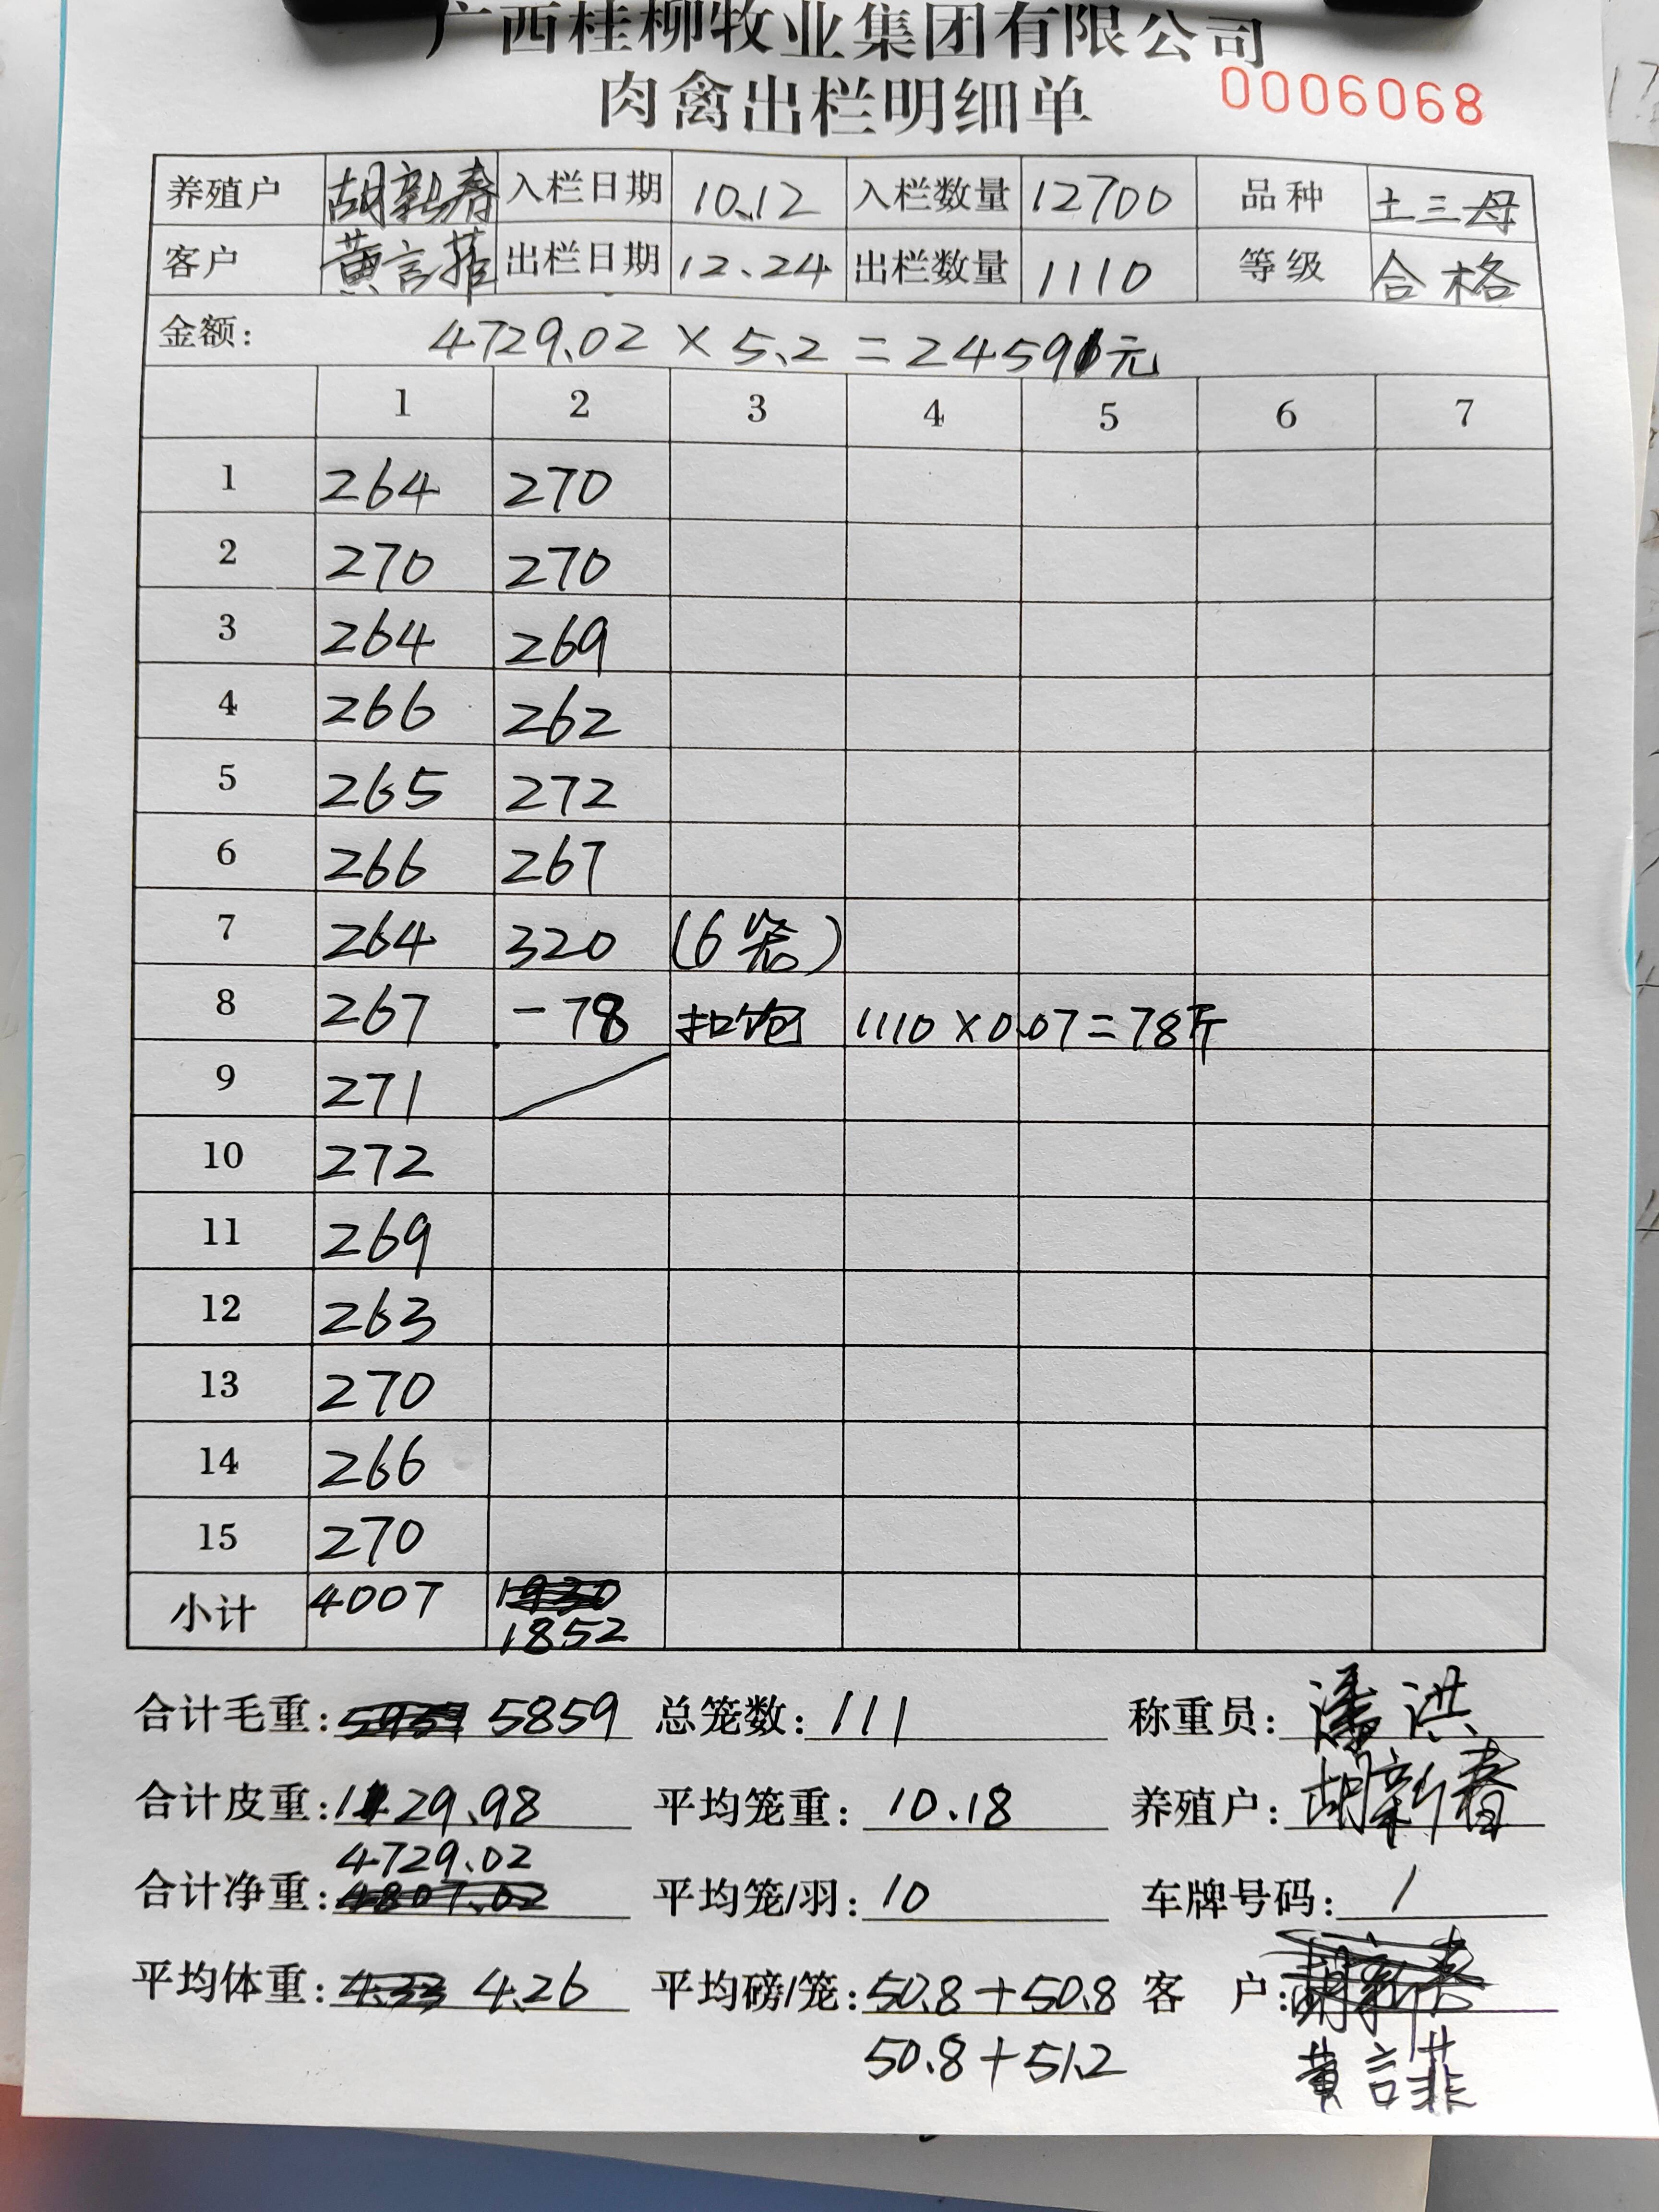 广西桂柳牧业集团有限公司
肉禽出栏明细单
0006068
养殖户 胡新春 入栏日期 10.12 入栏数量 12700 品种 土三母
客户 黄言菲 出栏日期 12.24 出栏数量 1110 等级 合格
金额: 4729.02 × 5.2 = 24591元
1 2 3 4 5 6 7
1 264 270
2 270 270
3 264 269
4 266 262
5 265 272
6 266 267
7 264 320 (6笼)
8 267 -78 扣饱 1110×0.07=78斤
9 271
10 272
11 269
12 263
13 270
14 266
15 270
小计 4007 1930
1852
合计毛重: 5859 总笼数: 111 称重员: 潘洪
合计皮重: 1129.98 平均笼重: 10.18 养殖户: 胡新春
4729.02
合计净重: 4807.02 平均笼/羽: 10 车牌号码: /
平均体重: 4.33 4.26 平均磅/笼: 50.8+50.8 客 户: 胡新春
50.8+51.2 黄言菲